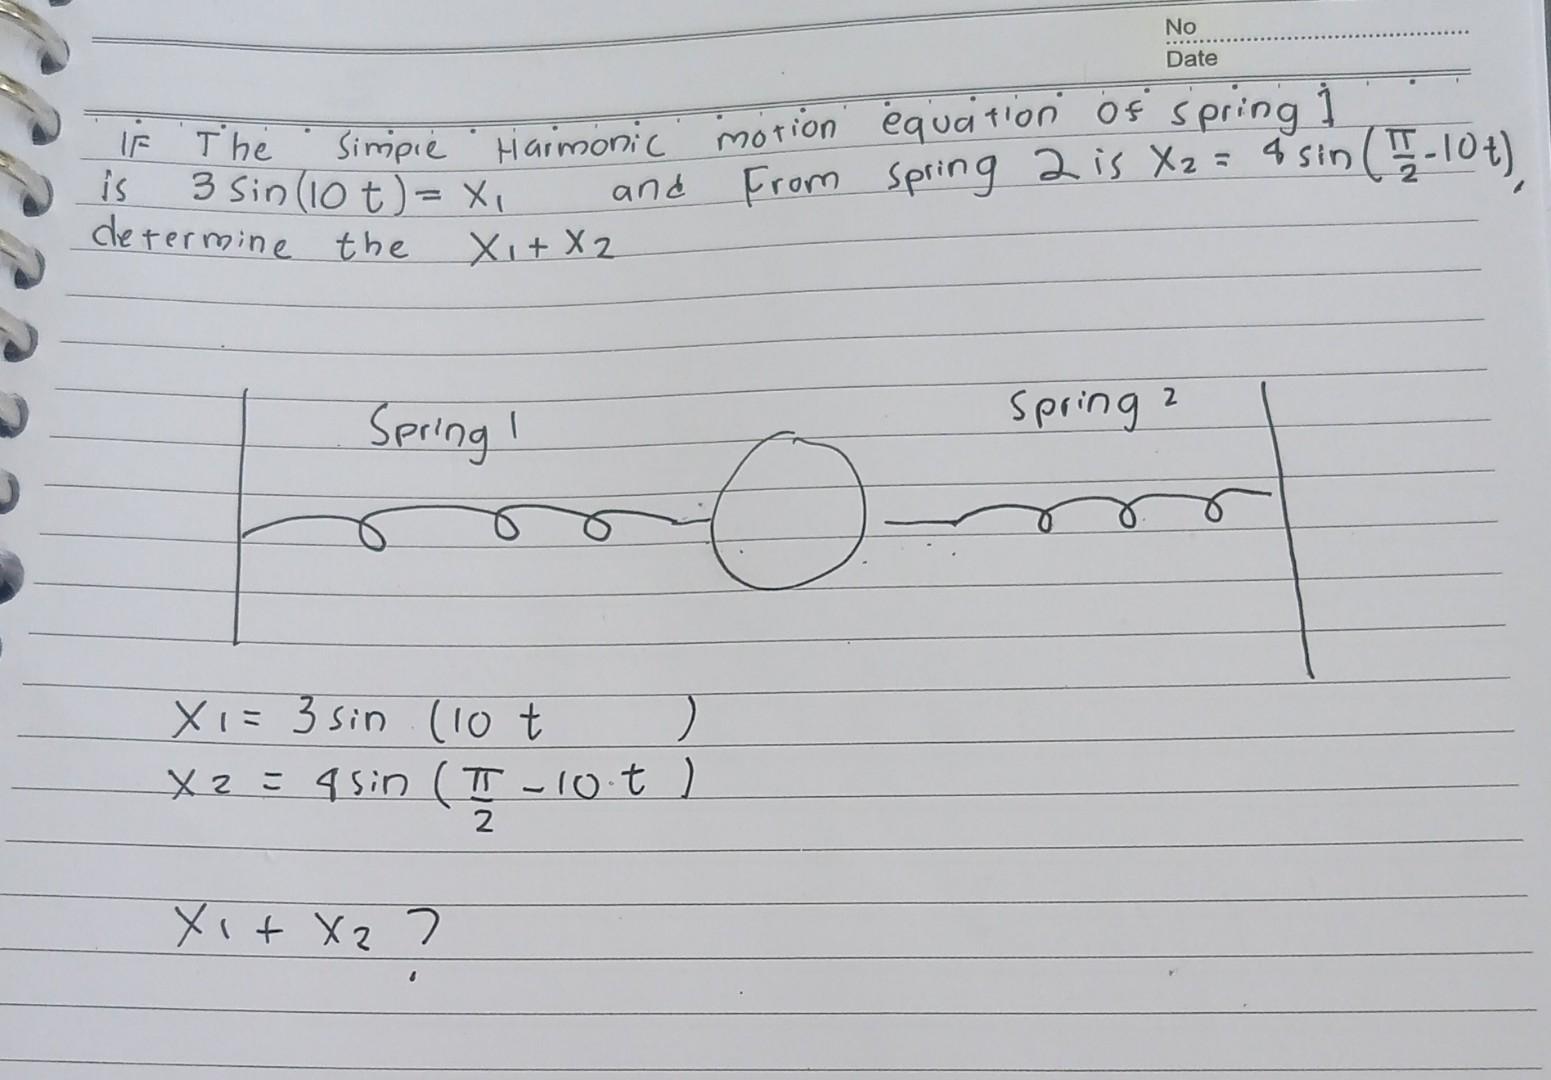 No
Date
IF The Simple Harmonic motion equation of spring 1
is 3 Sin(10 t) = X₁ and From spring 2 is X₂ = 4 sin(π/2 - 10t),
determine the X₁ + X₂
Spring 1
Spring 2
X₁ = 3 sin (10 t )
X₂ = 4 sin (π/2 - 10.t )
X₁ + X₂ ?